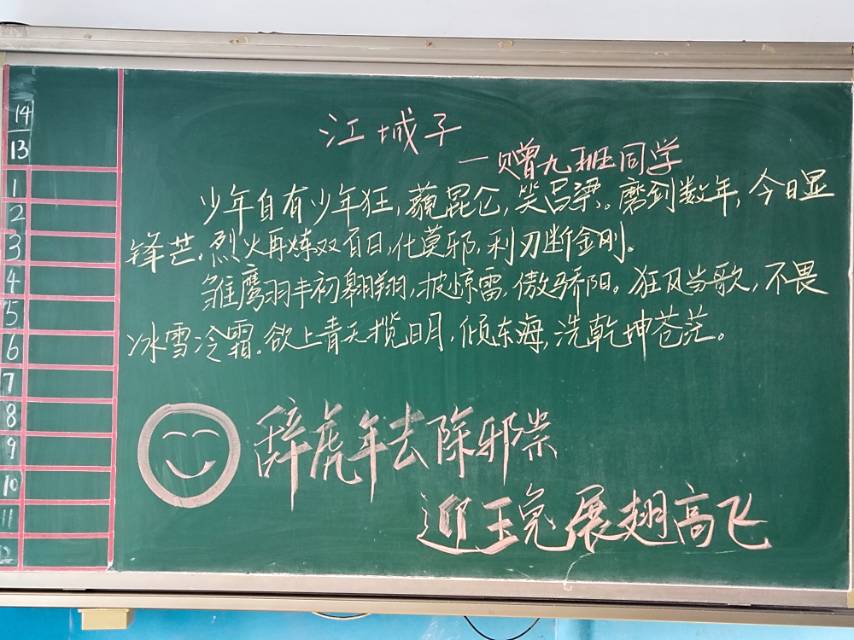 江城子
—赠九班同学
少年自有少年狂,藐昆仑,笑吕梁。磨剑数年,今日显
锋芒.烈火再炼双百日,化莫邪,利刃断金刚。
雏鹰羽丰初翱翔,披惊雷,傲骄阳。狂风当歌,不畏
冰雪冷霜.欲上青天揽日月,倾东海,洗乾坤苍茫。
辞虎年去除邪祟
迎玉兔展翅高飞
14
13
1
2
3
4
5
6
7
8
9
10
11
12